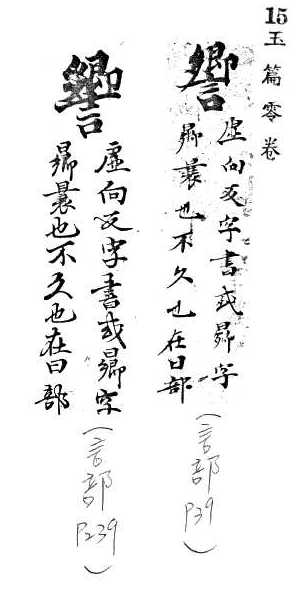 15
玉篇零卷
虛向反字書或曏字
曏曩也不久也在日部
(言部 P39)
虛向反字書或曏字
曏曩也不久也在日部
(言部 P239)